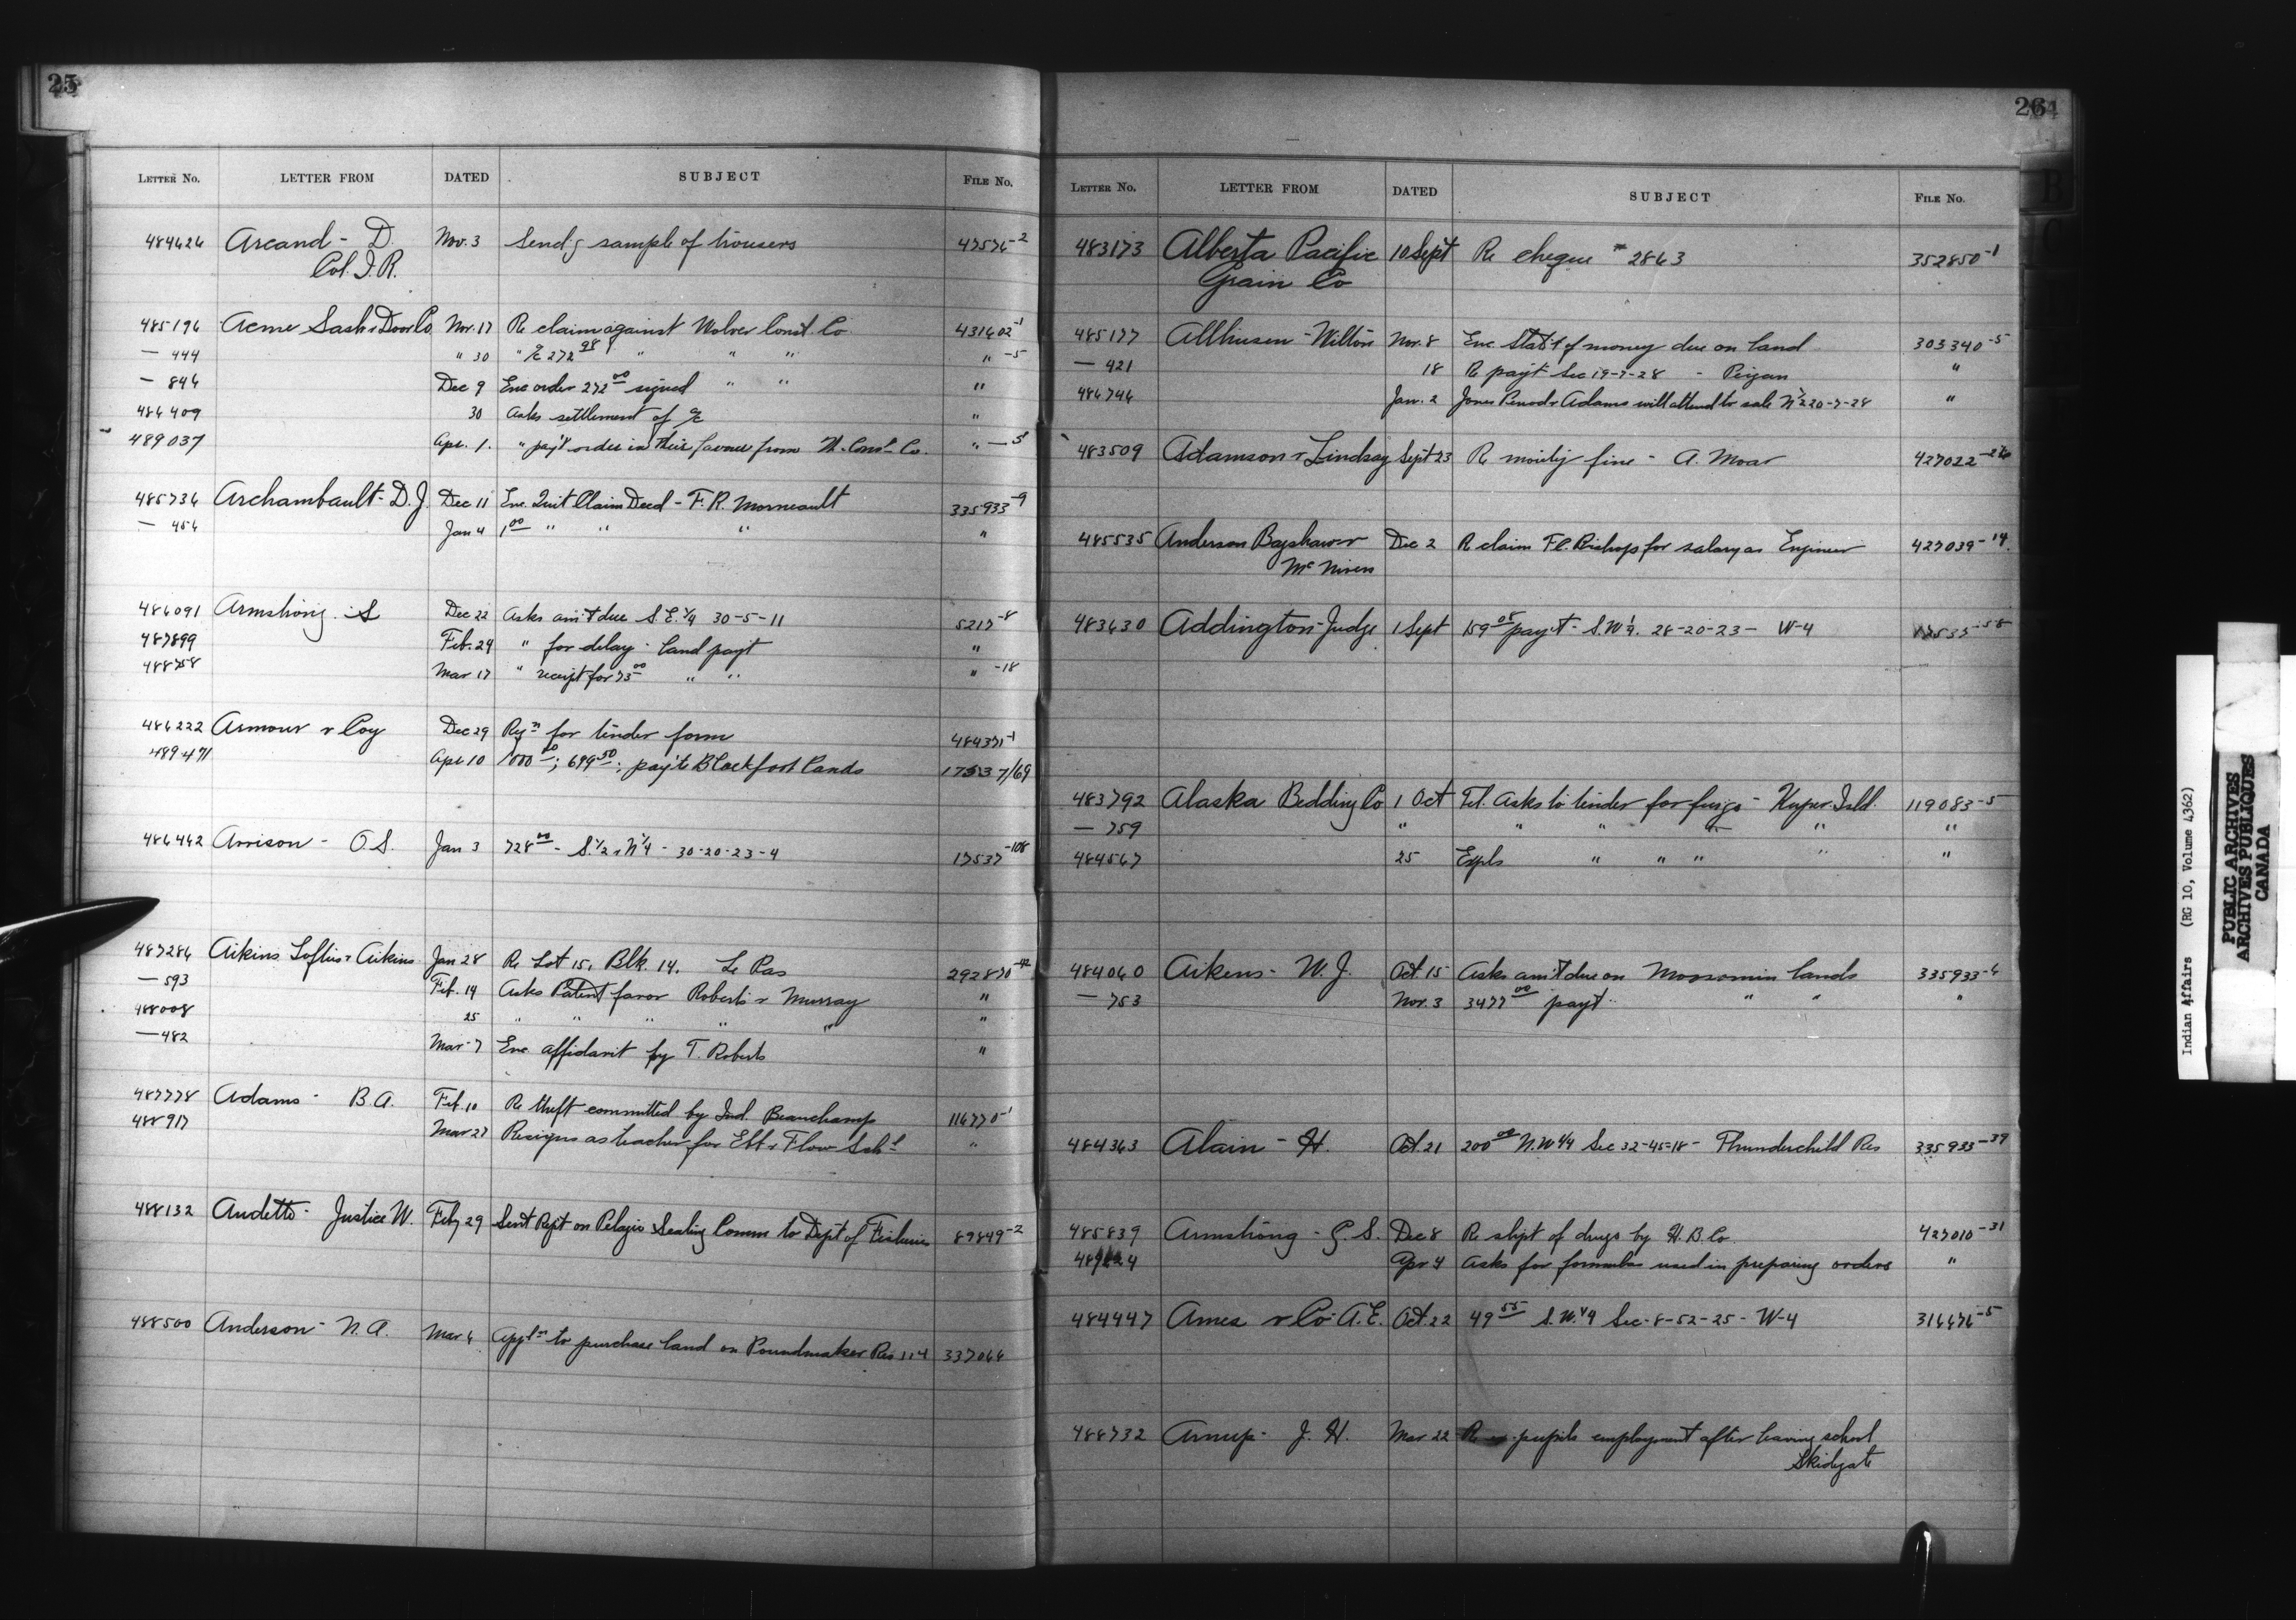 25
LETTER No. LETTER FROM DATED SUBJECT FILE No.
484626 Arcand - D. Nov. 3 Send'g sample of trousers 47576-2
Col. I. R.
485196 Acme Sash & Door Co. Nov. 17 Re claim against Wolver Const. Co. 431602-1
— 444 " 30 " a/c 272 98 " " " " -5
— 846 Dec 9 Enc order 272 00 signed " " "
486409 30 Asks settlement of a/c "
489037 Apr. 1. " pay't order in their favour from W. Const. Co. " — 5
485736 Archambault - D. J. Dec 11 Enc. Quit Claim Deed - F. R. Morneault 335933-9
— 454 Jan 4 1 00 " " " "
486091 Armstrong - S Dec 22 Asks am't due S.E. 1/4 30-5-11 5217-8
487899 Feb. 24 " for delay - land payt "
488758 Mar 17 " receipt for 75 00 " " " -18
486222 Armour & Coy Dec 29 Reqn for tender form 484371-1
489471 Apr 10 1000 00; 699 50; pay'ts Blackfoot Lands 17537/69
486442 Arrison - O. S. Jan 3 728 00 - S. 1/2 & N 1/4 - 30-20-23-4 17537-108
487286 Aikins Loftus & Aikins Jan 28 Re Lot 15, Blk. 14. Le Pas 292870
— 593 Feb. 14 Asks Patent favor Roberts & Murray "
488008 25 " " " " " "
— 482 Mar 7 Enc affidavit by T. Roberts "
487778 Adams - B. A. Feb. 10 Re theft committed by Ind. Beauchamp 116770-1
488917 Mar 27 Resigns as teacher for Ebb & Flow Schl "
488132 Audette - Justice W. Feby 29 Sent Rept on Pelagic Sealing Comm to Dept of Fisheries 89849-2
488500 Anderson - N. A. Mar 6 Appln to purchase land on Poundmaker Res 114 337066
26
LETTER No. LETTER FROM DATED SUBJECT FILE No.
483173 Alberta Pacific 10 Sept Re cheque # 2863 352850-1
Grain Co
485177 Allhusen - Wilton Nor. 8 Enc Stat't of money due on land 303340-5
— 421 18 Re pay't Sec 19-7-28 - Peigan "
486746 Jan. 2 Jones Adams will attend to sale 20-7-28 "
483509 Adamson & Lindsay Sept 23 Re moiety fine - A. Moar 427022
485535 Anderson Bagshawe & Dec 2 Re claim F C. Bishop for salary as Engineer 427039-14.
McNiven
483630 Addington - Judge 1 Sept 159 08 pay't - S.W 1/4. 28-20-23 - W-4 17537-58
483792 Alaska Bedding Co 1 Oct Tel. Asks to tender for furgs - Kuper Isld. 119083-5
— 759 " " " " " "
484567 25 Expls " " " " "
484060 Aikens - W. J. Oct. 15 Asks am't due on Moosomin lands 335933-6
— 753 Nov. 3 3477 00 pay't " " "
484363 Alain - H. Oct. 21 200 00 N.W 1/4 Sec 32-45-18 - Thunderchild Res 335933-39
485839 Armstrong - G. S. Dec 8 Re shipt of drugs by H. B. Co. 427010-31
Apr 4 Asks for formulas used in preparing orders "
484447 Ames & Co - A. E. Oct. 22 49 55 S.W. 1/4 Sec-8-52-25 - W-4 316676-5
488732 Arnup - J. H. Mar 22 Re pupils employment after leaving school
Skidegate
Indian Affairs (RG 10, Volume 4362)
PUBLIC ARCHIVES
ARCHIVES PUBLIQUES
CANADA